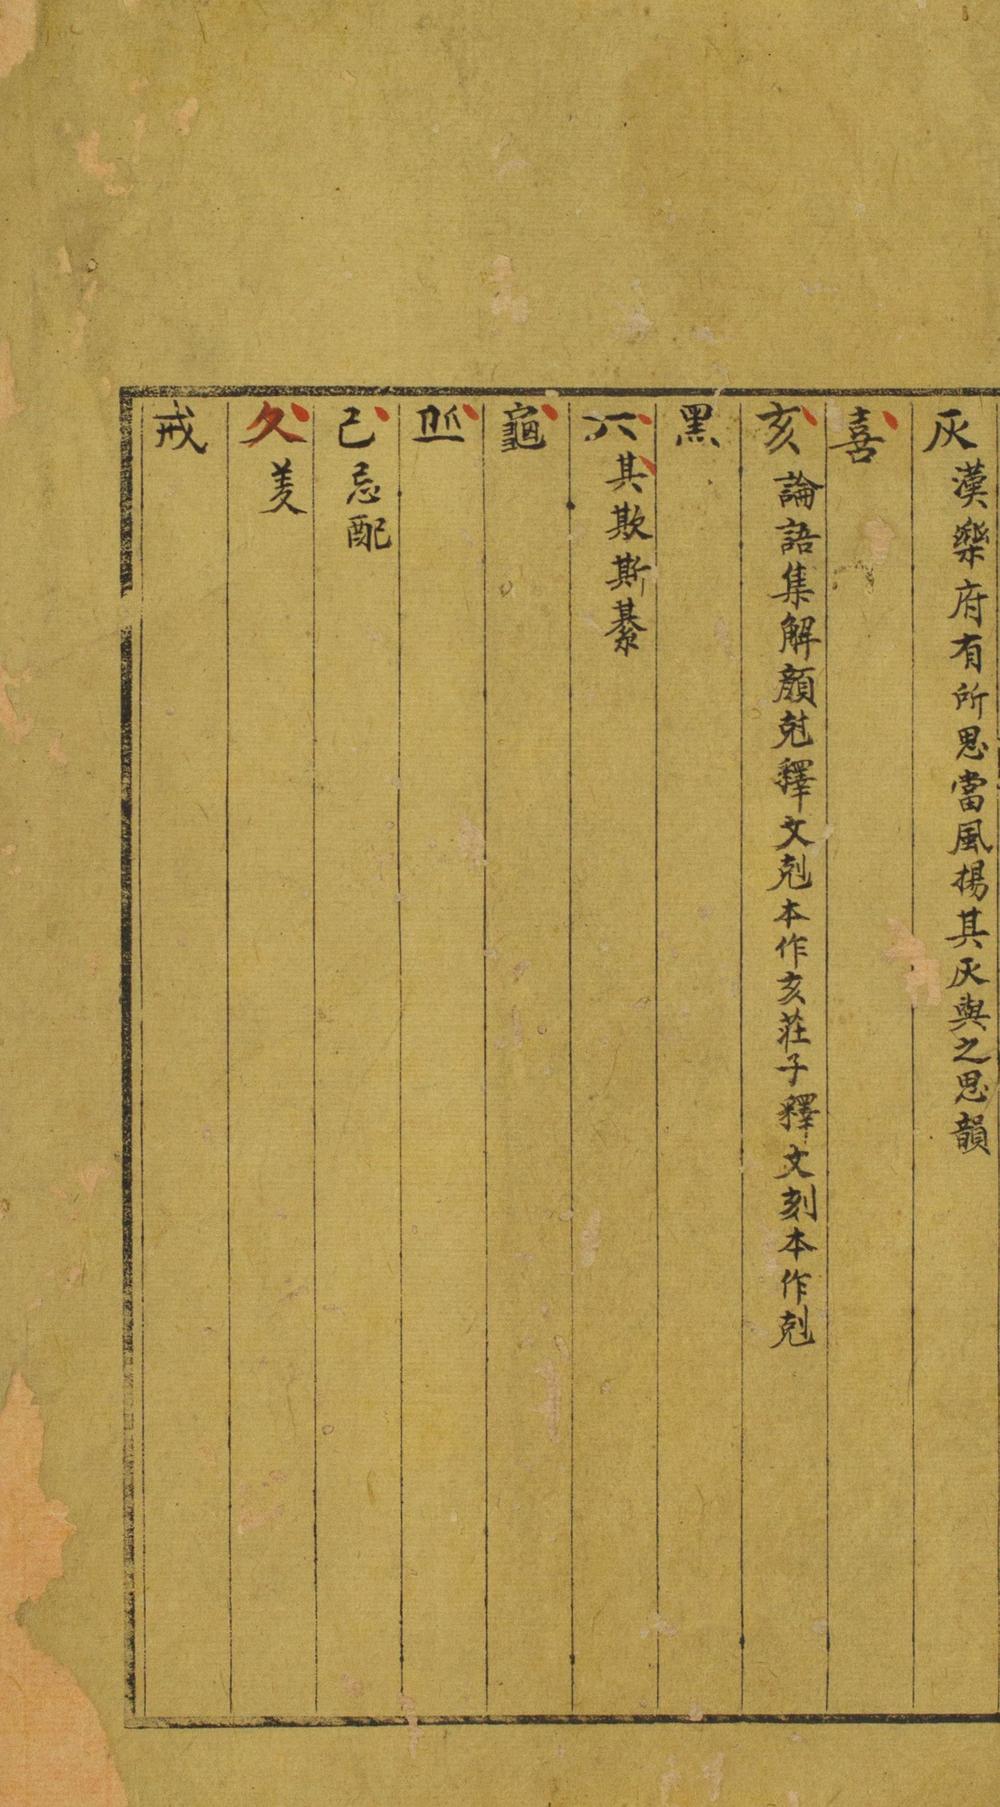 灰漢樂府有所思當風揚其灰與之思韻
喜
亥論語集解顏兙釋文剋本作亥莊子釋文刻本作剋
黑
丌其欺斯綦
龜
𦣞
己忌配
久羑
戒